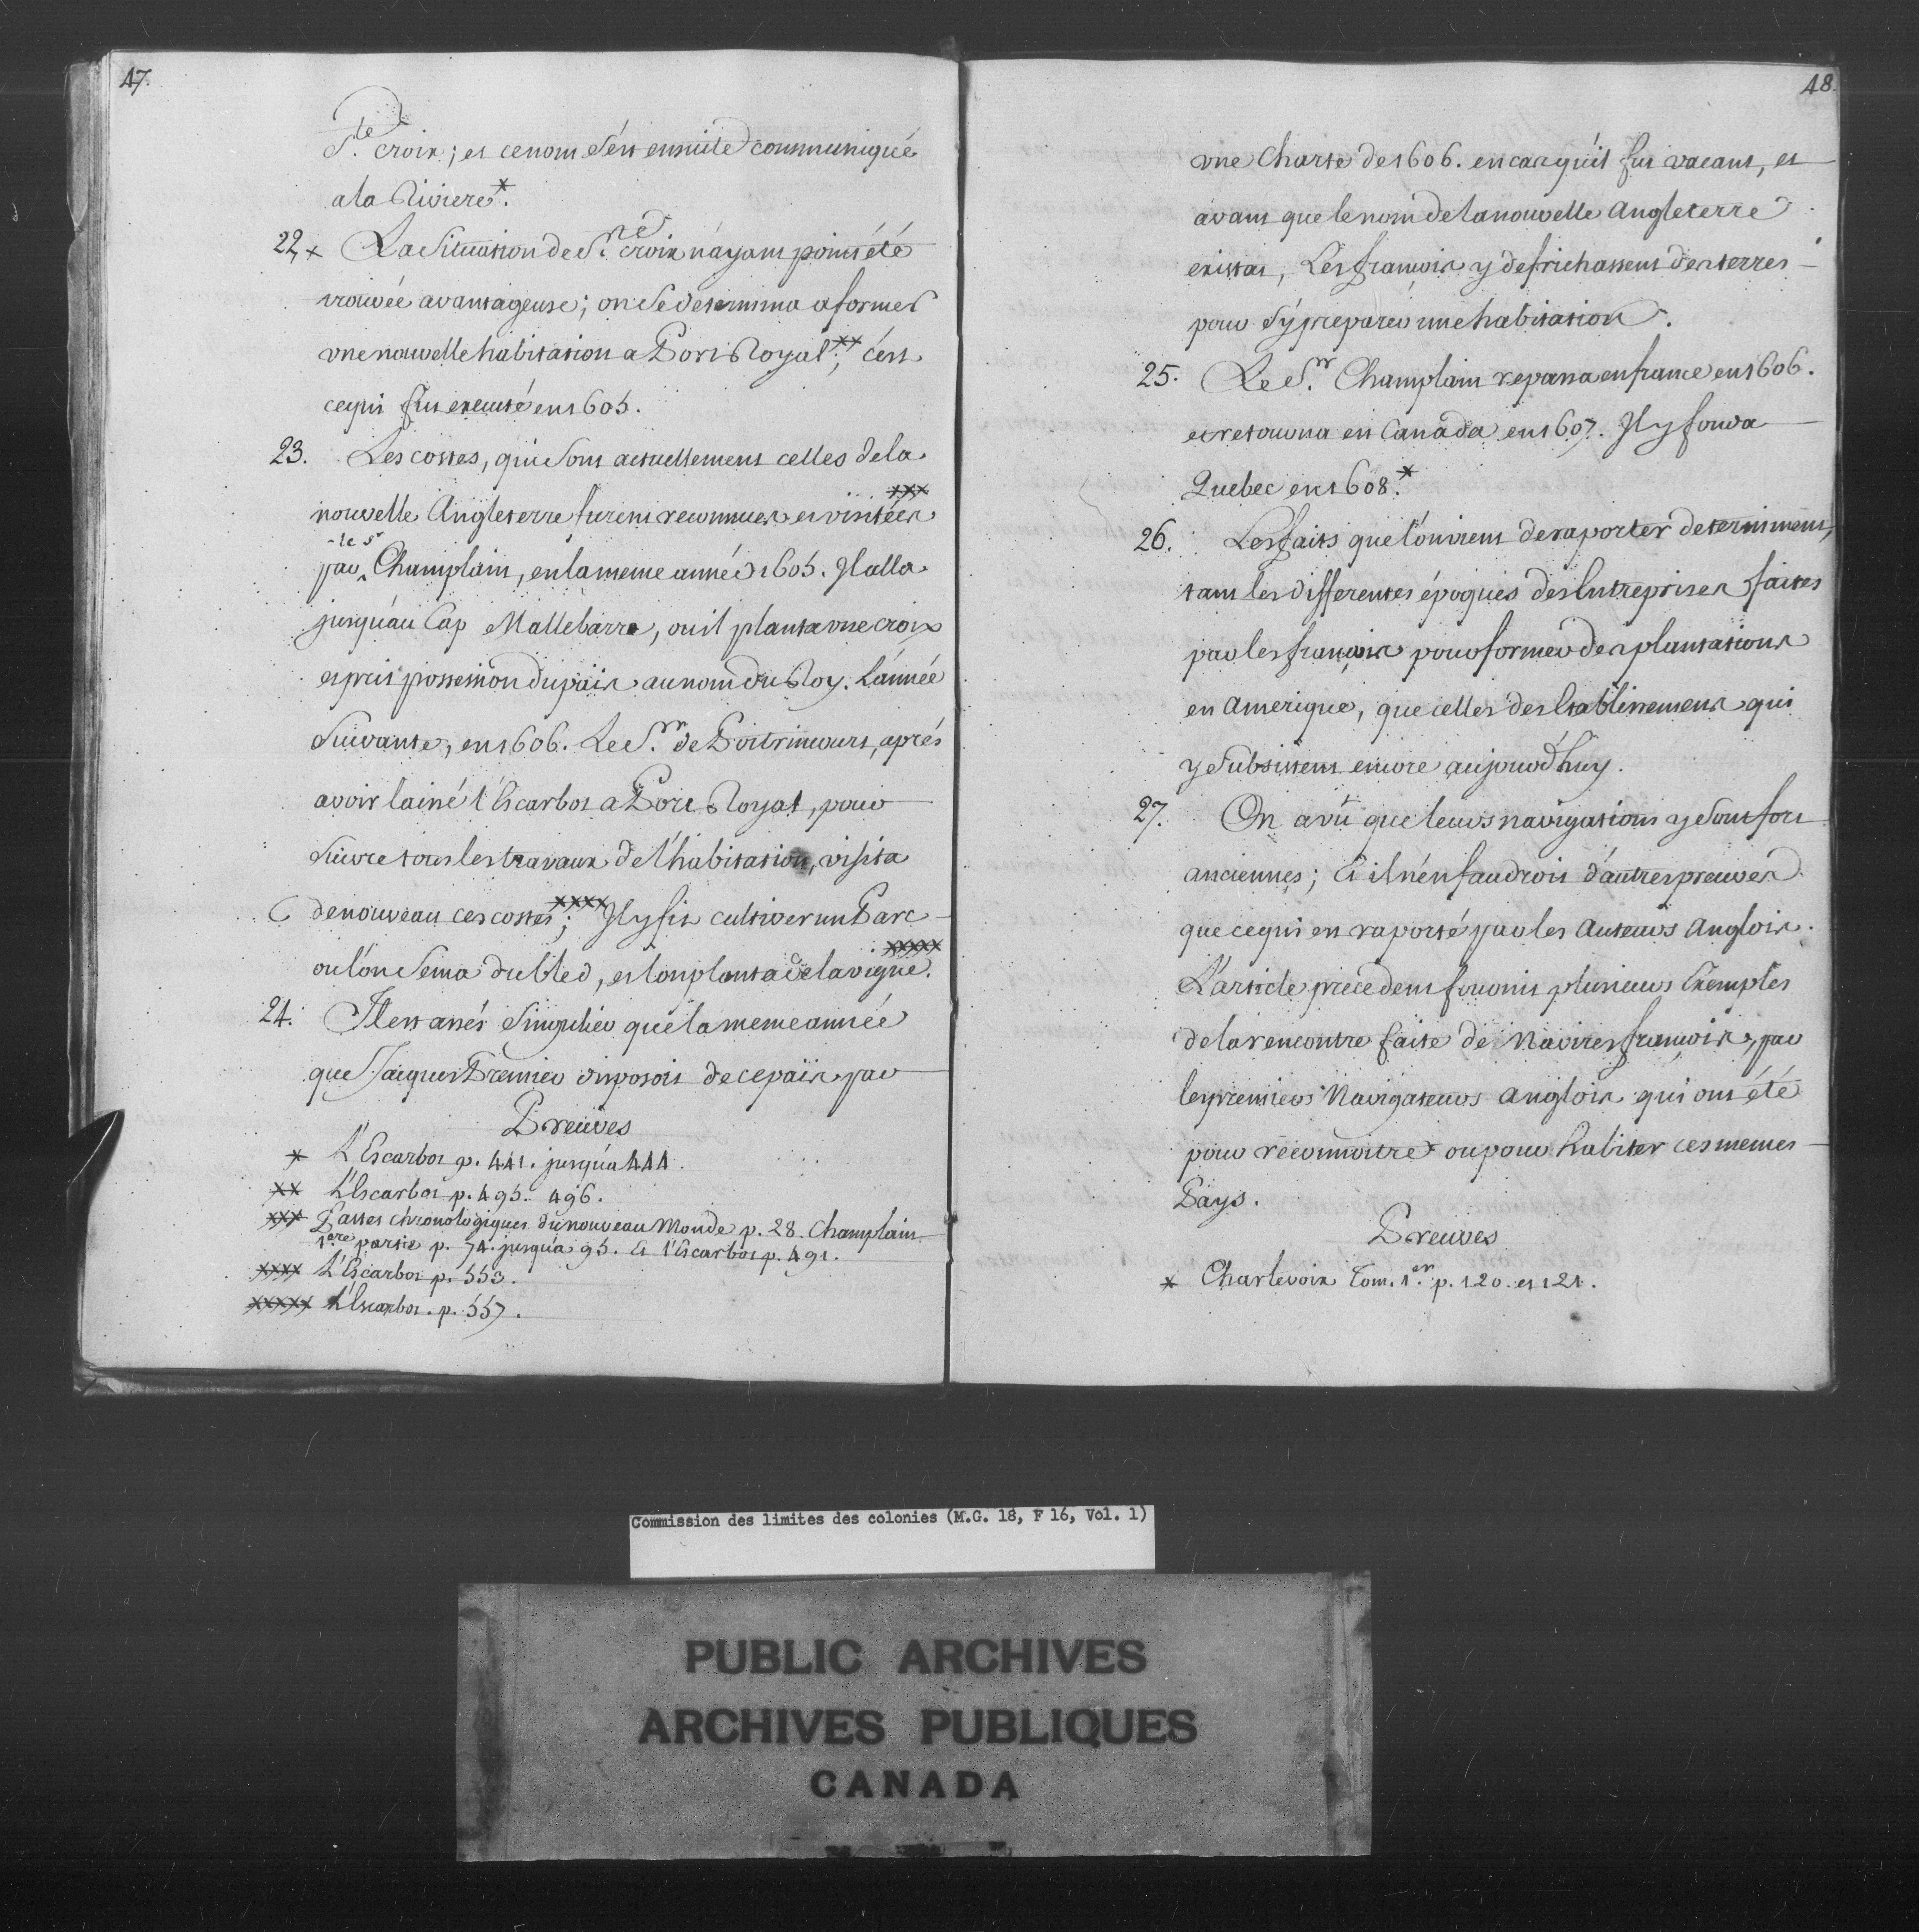 47.
S.te croix; et ce nom s'est ensuite communiqué
a la Riviere*.
22. x La Situation de S.te croix n'ayant point été
trouvée avantageuse; on se determina a former
une nouvelle habitation a Port Royal xx; c'est
ce qui fut executé en 1605.
23. Les costes, qui sont actuellement celles de la
nouvelle Angleterre furent reconnues et visitées xxx
par le Sr Champlain, en la meme année 1605. Il alla
jusqu'au Cap Mallebarre, ou il planta une croix
et prit possession du païs au nom du Roy. L'année
Suivante, en 1606. Le S.r de Poitrincourt, aprés
avoir laissé l'Escarbot a Port Royal, pour
suivre tous les travaux de l'habitation, visita
de nouveau ces costes xxxx; Il y fit cultiver un Parc
ou l'on sema du bled, et l'on planta de la vigne xxxxx.
24. Il est assés singulier que la meme année
que Jacques Premier disposoit de ce païs par
Preuves
* L'Escarbot p. 441. jusqu'a 444.
xx L'Escarbot p. 495. 496.
xxx Fastes chronologiques du nouveau Monde p. 28. Champlain
1ere partie p. 74. jusqu'a 95. Et l'Escarbot p. 491.
xxxx L'Escarbot p. 553.
xxxxx L'Escarbot. p. 557.
48.
une Charte de 1606. en cas qu'il fut vacant, et
avant que le nom de la nouvelle Angleterre
existat, Les françois y defrichassent des terres
pour s'y preparer une habitation.
25. Le S.r Champlain repassa en france en 1606.
et retourna en Canada en 1607. Il y fonda
Quebec en 1608.*
26. Les faits que l'on vient de raporter determinent,
tant les differentes époques des Entreprises faites
par les françois pour former des plantations
en Amerique, que celles des Etablissemens qui
y subsistent encore aujourd'huy.
27. On a vû que leurs navigations y sont fort
anciennes; Et il n'en faudroit d'autres preuves
que ce qui en raporté par les Auteurs Anglois.
L'article precedent fournit plusieurs Exemples
de la rencontre faite de Navires françois, par
les premiers Navigateurs Anglois qui ont été
pour reconnoitre ou pour habiter ces memes
Pays.
Preuves
* Charlevoix Tom. 1.er p. 120. et 121.
Commission des limites des colonies (M.G. 18, F 16, Vol. 1)
PUBLIC ARCHIVES
ARCHIVES PUBLIQUES
CANADA